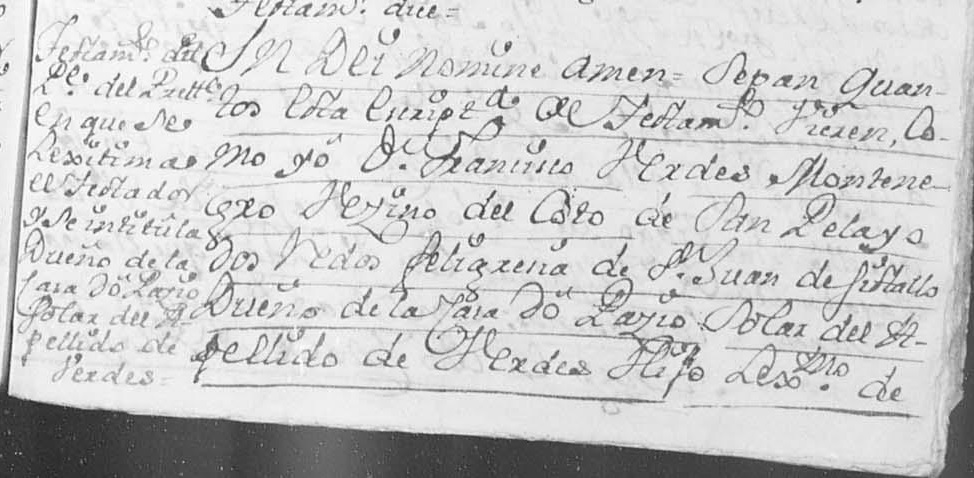 Testamto. due=
Testamto. del
Po. del Prette.
en que se
Lexitima
el Testador
y se intitula
Dueño de la
Casa do Pazio
Solar del A-
pellido de
Verdes=
In Dei Nomine Amen= Sepan Quan-
tos Esta Enript.a de Testamto. Vieren, Co-
mo yo Dn. Francisco Verdes Montene-
gro Vezino del Coto de San Pelayo
dos Vedos feligresia de Sn. Juan de sistallo
Dueño de la Casa do Pazio Solar del A-
pellido de Verdes Hijo Lexmo. de